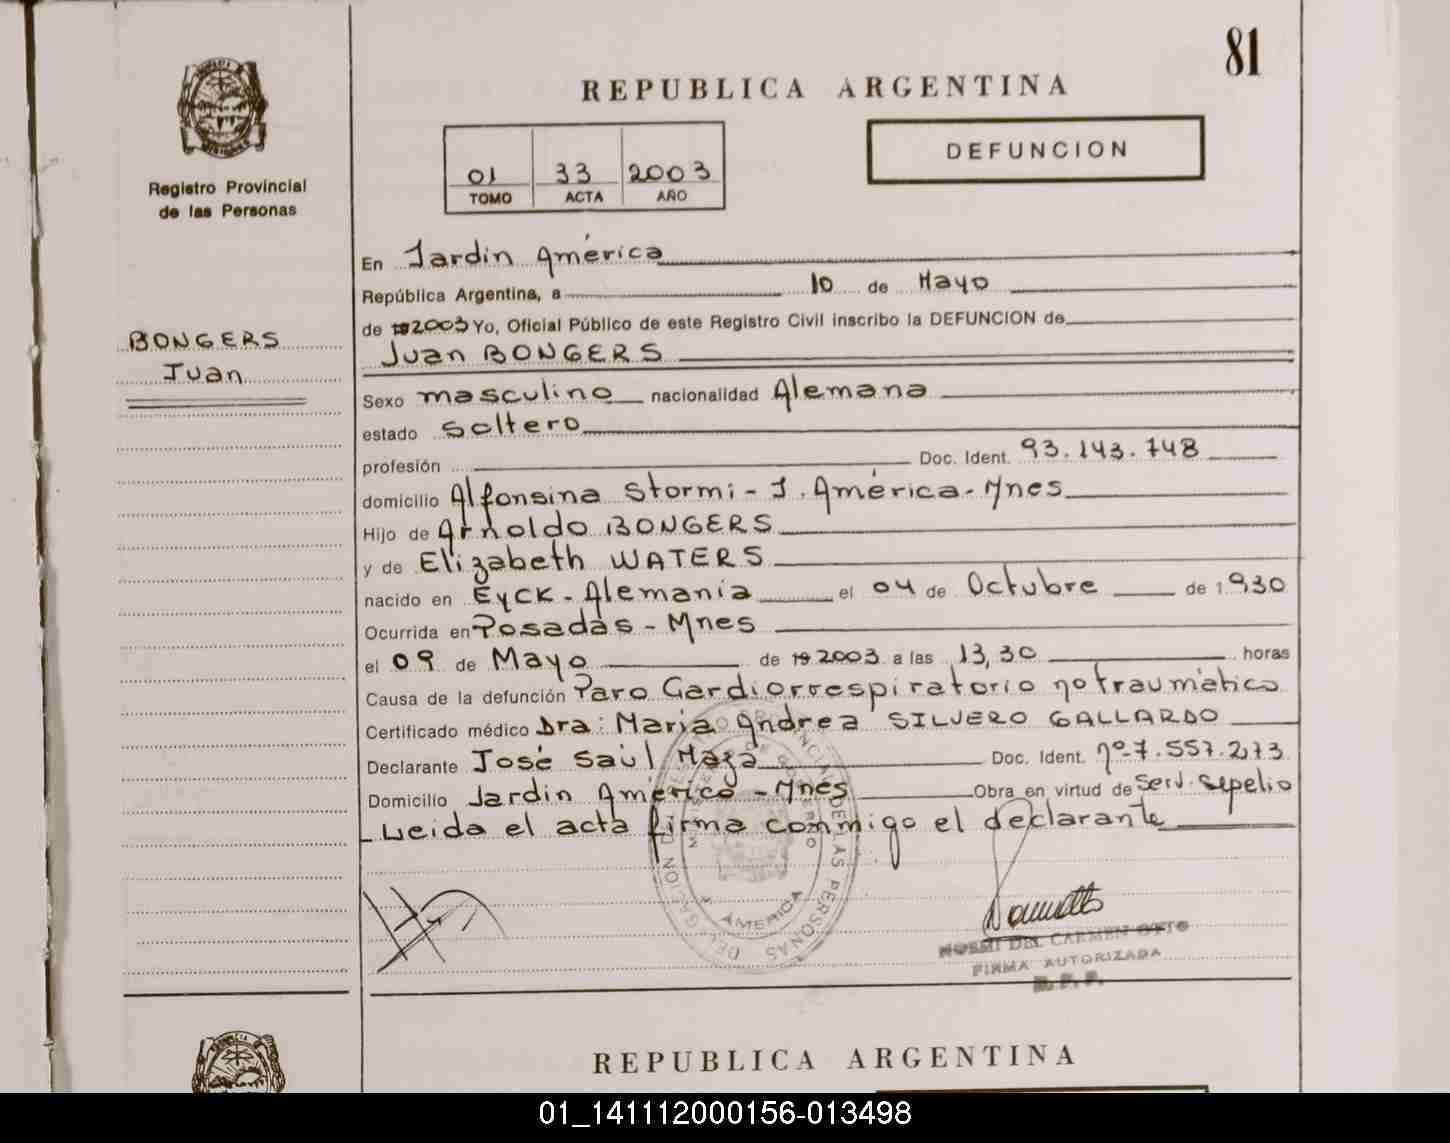 81
REPUBLICA ARGENTINA
DEFUNCION
01 33 2003
TOMO ACTA AÑO
Registro Provincial
de las Personas
BONGERS
Juan
En Jardin América
República Argentina, a 10 de Mayo
de 2003 Yo, Oficial Público de este Registro Civil inscribo la DEFUNCION de
Juan BONGERS
Sexo masculino nacionalidad Alemana
estado soltero
profesión Doc. Ident. 93.143.748
domicilio Alfonsina Stormi - J. América - Mnes
Hijo de Arnoldo BONGERS
y de Elizabeth WATERS
nacido en Eyck - Alemania el 04 de Octubre de 1.930
Ocurrida en Posadas - Mnes
el 09 de Mayo de 2003 a las 13,30 horas
Causa de la defunción Paro Cardiorrespiratorio no traumático
Certificado médico Dra: Maria Andrea SILVERO GALLARDO
Declarante José Saúl Maza Doc. Ident. nº 7.557.273
Domicilio Jardin América - Mnes Obra en virtud de Serv. Sepelio
Leida el acta firma conmigo el declarante
DEL CARMEN OTTO
FIRMA AUTORIZADA
REPUBLICA ARGENTINA
01_141112000156-013498